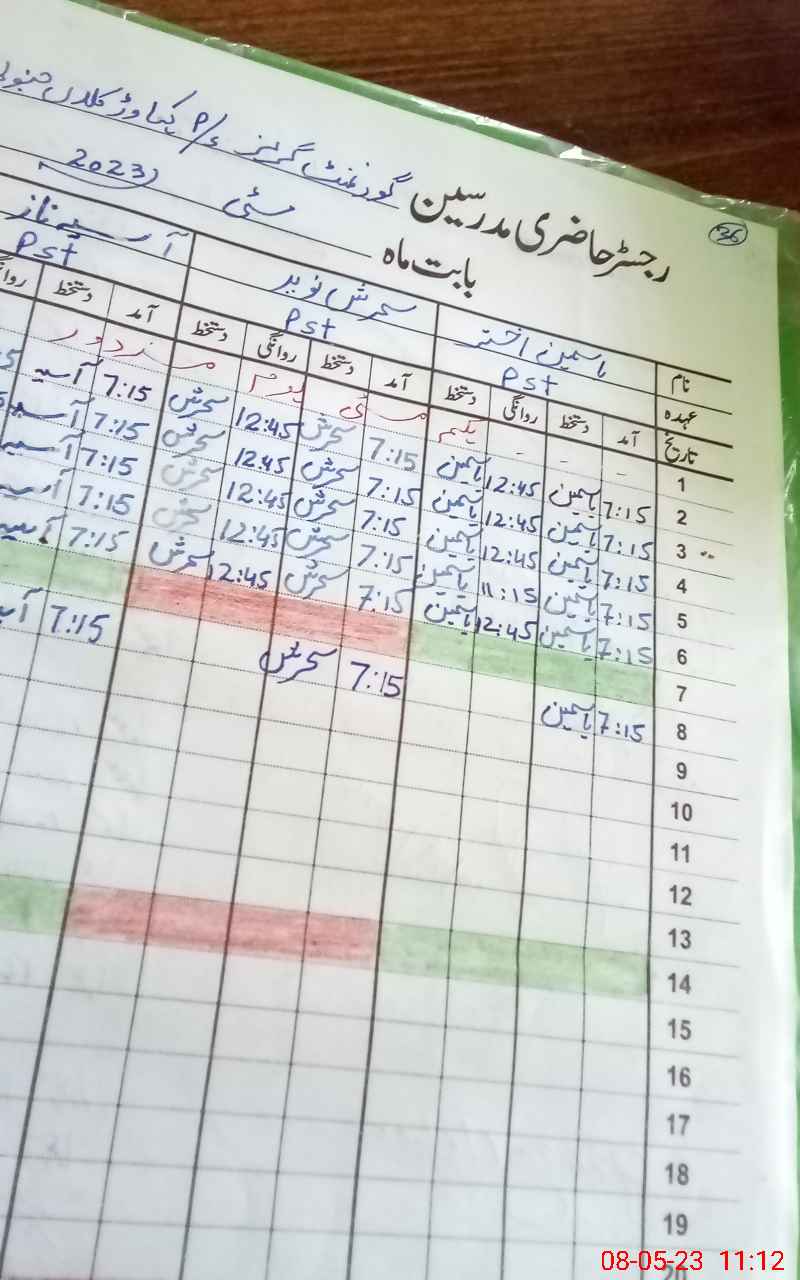 36
رجسٹر حاضری مدرسین گورنمنٹ گرلز
بابت ماہ مئی 2023
نام یاسمین اختر سحرش نوید آسیہ ناز
عہدہ Pst Pst Pst
تاریخ آمد دستخط روانگی دستخط آمد دستخط روانگی دستخط آمد دستخط
1 - - - یکم مئی یوم مزدور
2 7:15 یاسمین 12:45 یاسمین 7:15 سحرش 12:45 سحرش 7:15 آسیہ
3 7:15 یاسمین 12:45 یاسمین 7:15 سحرش 12:45 سحرش 7:15 آسیہ
4 7:15 یاسمین 12:45 یاسمین 7:15 سحرش 12:45 سحرش 7:15 آسیہ
5 7:15 یاسمین 11:15 یاسمین 7:15 سحرش 12:45 سحرش 7:15 آسیہ
6 7:15 یاسمین 12:45 یاسمین 7:15 سحرش 12:45 سحرش 7:15 آسیہ
7
8 7:15 یاسمین 7:15 سحرش 7:15
9
10
11
12
13
14
15
16
17
18
19
20
08-05-23 11:12